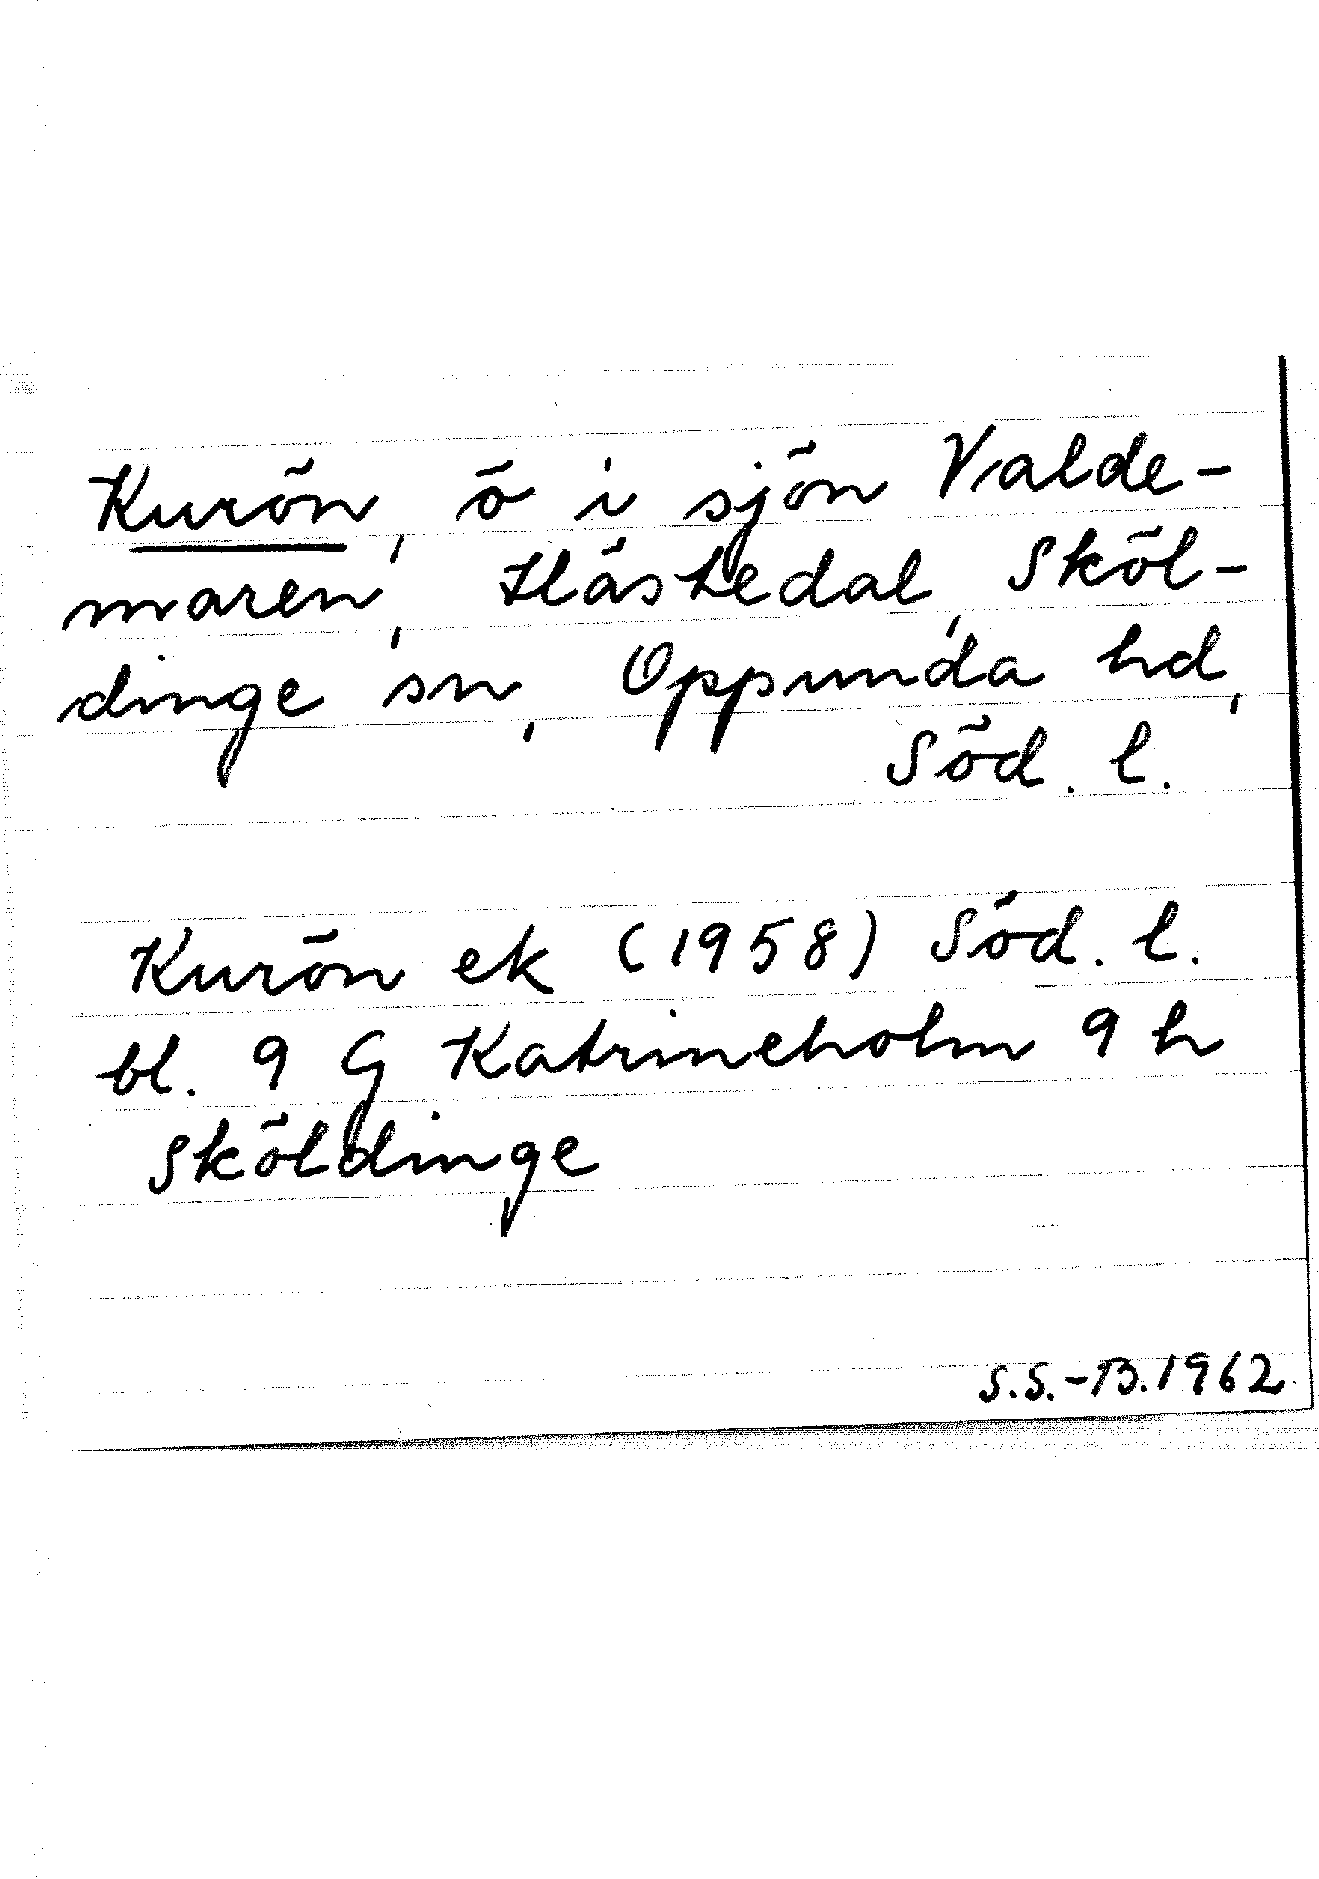 Kurön, ö i sjön Valde-
maren, Hästedal, Sköl-
dinge sn, Oppunda hd,
Söd. l.
Kurön ek (1958) Söd. l.
bl. 9 G Katrineholm 9 h
Sköldinge
S.S.-B.1962